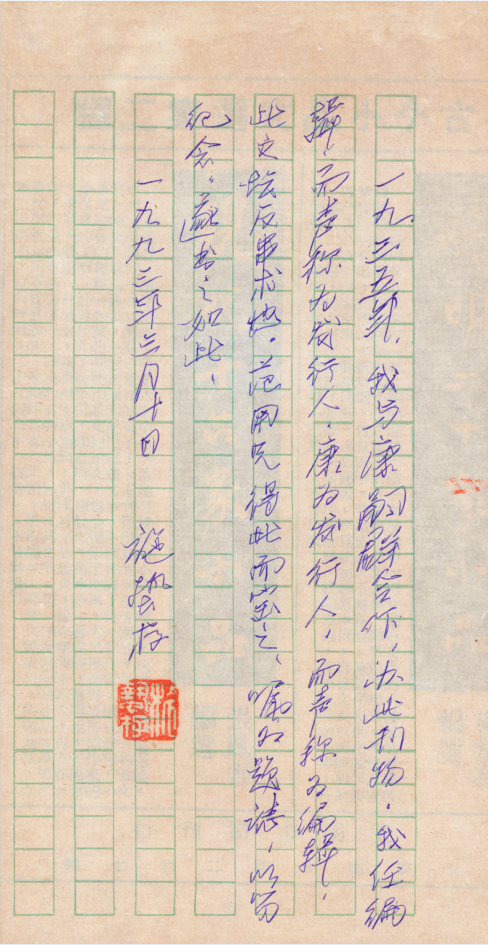 一九三五年,我与康嗣群合作,办此刊物。我任编
辑,而声称为发行人,康为发行人,而声称为编辑。
此文坛反串术也。范用兄得此而宝之,嘱为题誌,以留
纪念。遂书之如此。
一九九三年三月十日 施蛰存